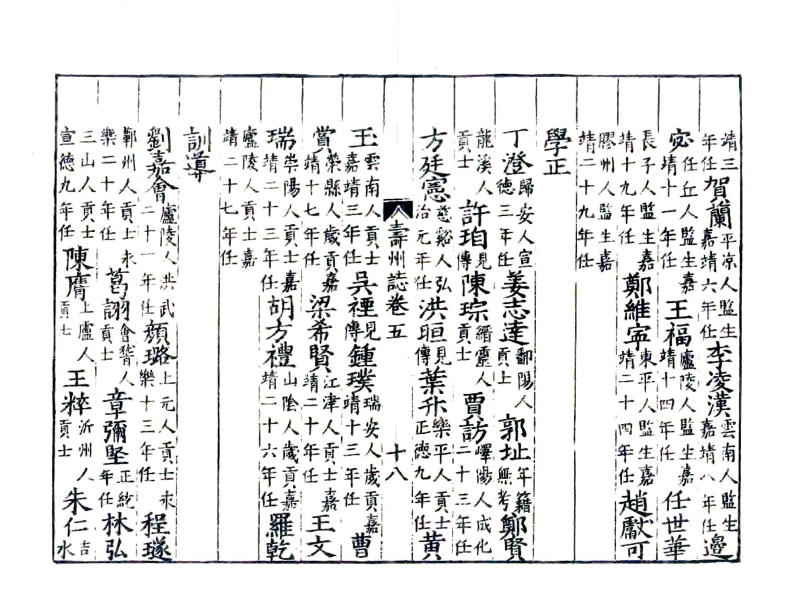 靖三年任賀蘭平凉人監生嘉靖六年任李凌漢雲南人監生嘉靖八年任邊
宓任丘人監生嘉靖十一年任王福廬陵人監生嘉靖十四年任任世華
長子人監生嘉靖十九年任鄭維寧東平人監生嘉靖二十四年任趙獻可
膠州人監生嘉靖二十九年任
學正
丁澄歸安人宣德三年任姜志達鄱陽人貢士郭址年籍無考鄭賢
龍溪人貢士許珀見傳陳琮縉靈人貢士賈訪嶧陽人成化二十三年任
方廷憲慈谿人弘治元年任洪晅見傳葉升樂平人貢士正德九年任黃
壽州誌卷五 十八
玉雲南人貢士嘉靖三年任吳禋見傳鍾璞瑞安人歲貢嘉靖十三年任曹
賞榮縣人歲貢嘉靖十七年任梁希賢江津人貢士嘉靖二十年任王文
瑞崇陽人貢士嘉靖二十三年任胡方禮山陰人歲貢嘉靖二十六年任羅乾
廬陵人貢士嘉靖二十七年任
訓導
劉嘉會廬陵人洪武二十一年任顏璐上元人貢士永樂十三年任程璲
鄞州人貢士永樂二十年任葛詡會稽人貢士章彌堅正統年任林弘
三山人貢士宣德九年任陳膺上盧人貢士王粹沂州人貢士朱仁吉水